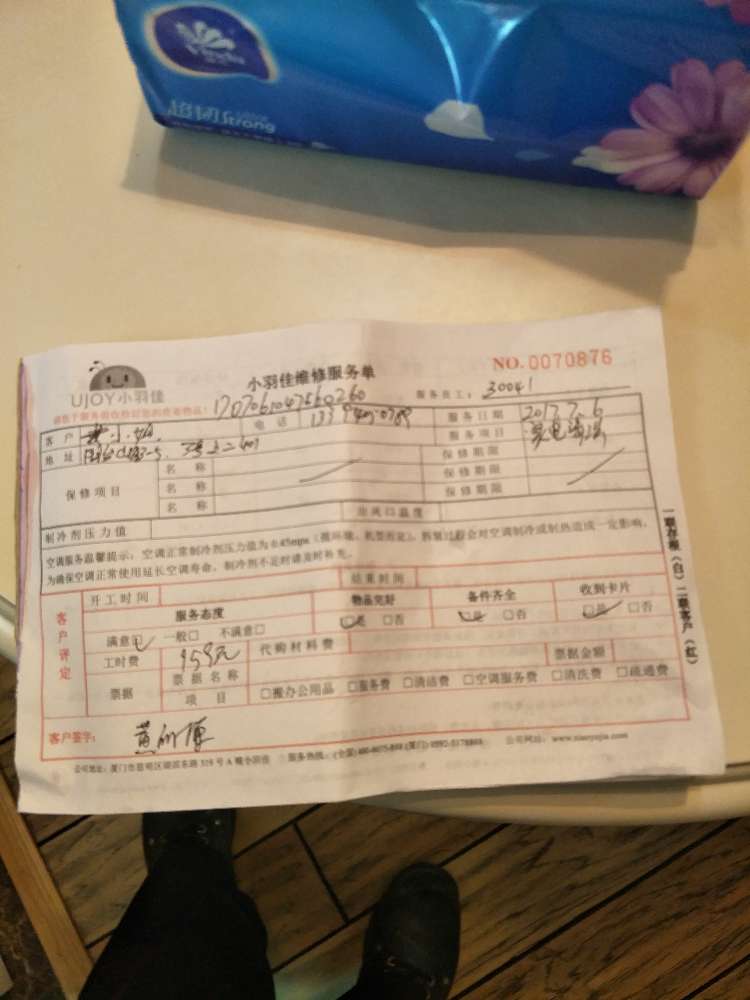 Vinda
超韧Strong
UJOY小羽佳
小羽佳维修服务单
NO.0070876
服务员工：30041
客户
电话
服务日期 2017.7.6
地址
服务项目 家电清洗
保修项目 名称 保修期限
名称 保修期限
名称 保修期限
制冷剂压力值 出风口温度
空调服务温馨提示：空调正常制冷剂压力值为0.45mpa（循环境、机型而定），拆装过程会对空调制冷或制热造成一定影响，
为确保空调正常使用延长空调寿命，制冷剂不足时请及时补充。
客户评定
开工时间 结束时间
服务态度 物品完好 备件齐全 收到卡片
满意□ 一般□ 不满意□ □是 □否 □是 □否 □是 □否
工时费 959元 代购材料费
票据 票据名称 票据金额
项目 □搬办公用品 □服务费 □清洁费 □空调服务费 □清洗费 □疏通费
客户签字：
公司地址：厦门市思明区湖滨东路319号A幢小羽佳 服务热线：(全国)400-6675-888 (厦门) 0592-5178888 公司网址：www.xiaoyujia.com
一联存根（白）二联客户（红）